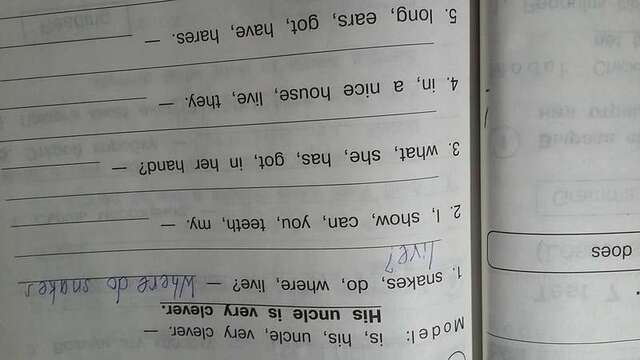 Model: is, his, uncle, very clever. —
His uncle is very clever.
1. snakes, do, where, live? — Where do snakes
live?
2. I, show, can, you, teeth, my. —
3. what, she, has, got, in her hand? —
4. in, a nice house, live, they. —
5. long, ears, got, have, hares. —
does